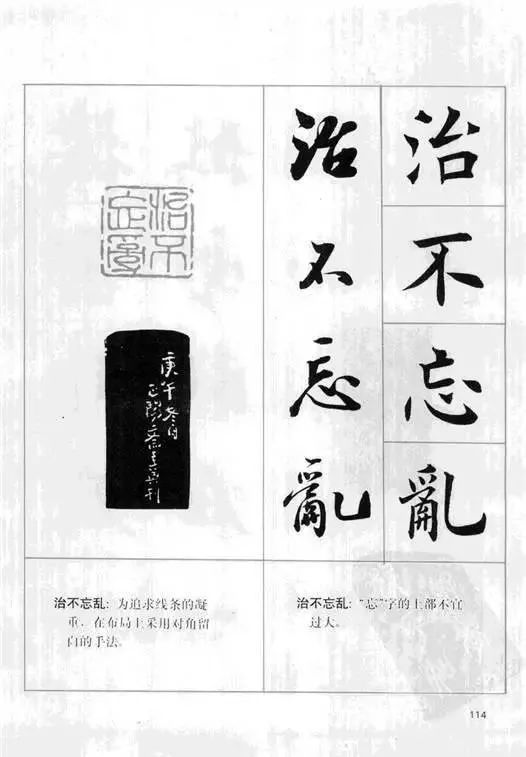 治不忘亂
治不忘亂
治不忘亂
庚午冬月
治不忘乱：为追求线条的凝
重，在布局上采用对角留
白的手法。
治不忘乱：“忘”字的上部不宜
过大。
114